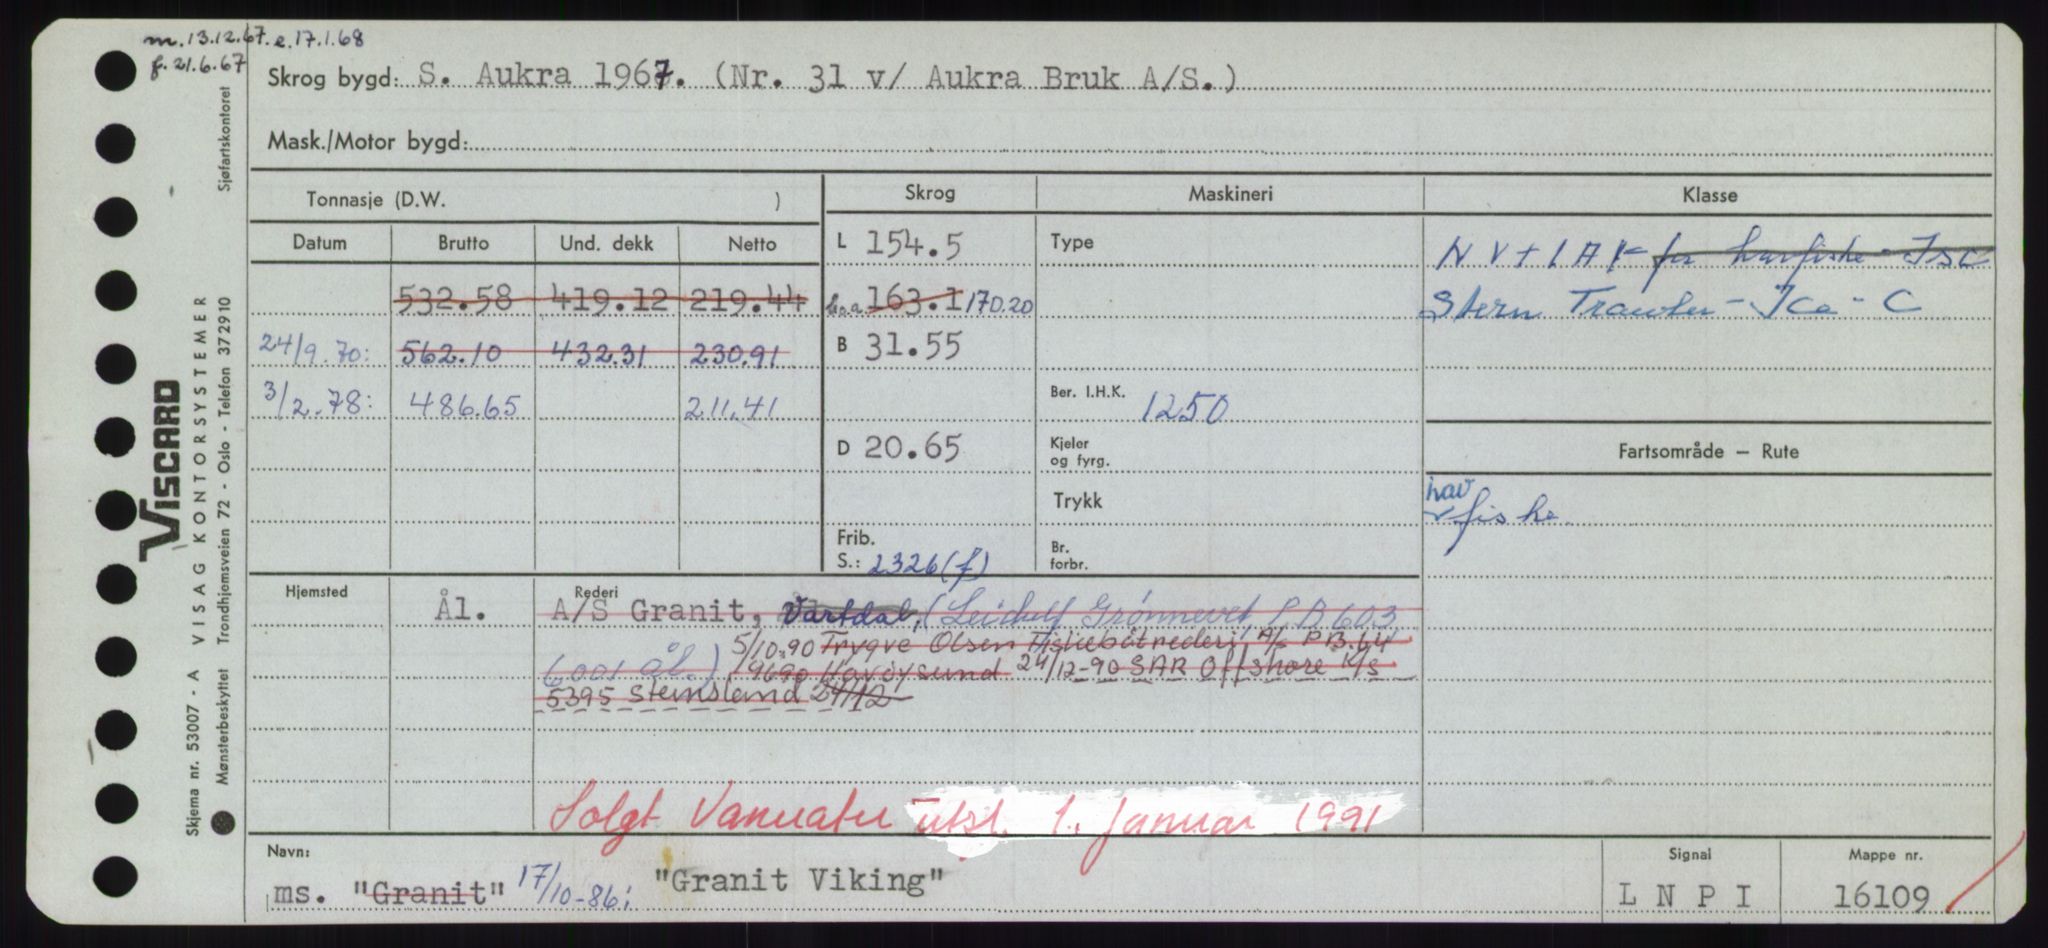 m. 13.12.67. e. 17.1.68
f. 21.6.67
Skrog bygd: S. Aukra 1967. (Nr. 31 v/ Aukra Bruk A/S.)
Mask./Motor bygd:
Tonnasje (D.W. )
Datum Brutto Und. dekk Netto
532.58 419.12 219.44
24/9.70: 562.10 432.31 230.91
3/2.78: 486.65 211.41
Skrog
L 154.5
163.1 170.20
B 31.55
D 20.65
Frib.
S.: 2326 (f)
Maskineri
Type
Ber. I.H.K. 1250
Kjeler
og fyrg.
Trykk
Br.
forbr.
Klasse
N V + 1 A 1 - for havfiske - Isc
Stern Trawler - Ice - C
Fartsområde — Rute
hav
fiske
Hjemsted
Ål.
Rederi
A/S Granit, Vartdal, (Leidulf Grønnevet, P.B 603
6001 Ål.) 5/10.90 Trygve Olsen Fiskebåtrederi A/S P.B. 64
9690 Havøysund 24/12-90 SAR Offshore K/S
5395 Steinsland 24/12
Solgt Vanuatu utsl. 1. januar 1991
Navn:
ms. "Granit" 17/10-86: "Granit Viking"
Signal
L N P I
Mappe nr.
16109
Sjøfartskontoret
VISCARD
VISAG KONTORSYSTEMER
Trondhjemsveien 72 - Oslo - Telefon 372910
Skjema nr. 53007 - A
Mønsterbeskyttet